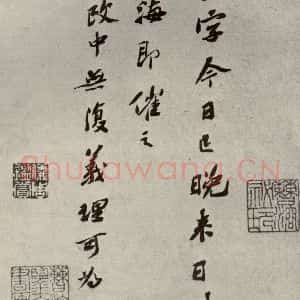 字今日已晚来日
海即催之
政中無復義理可為
Shufawang.CN